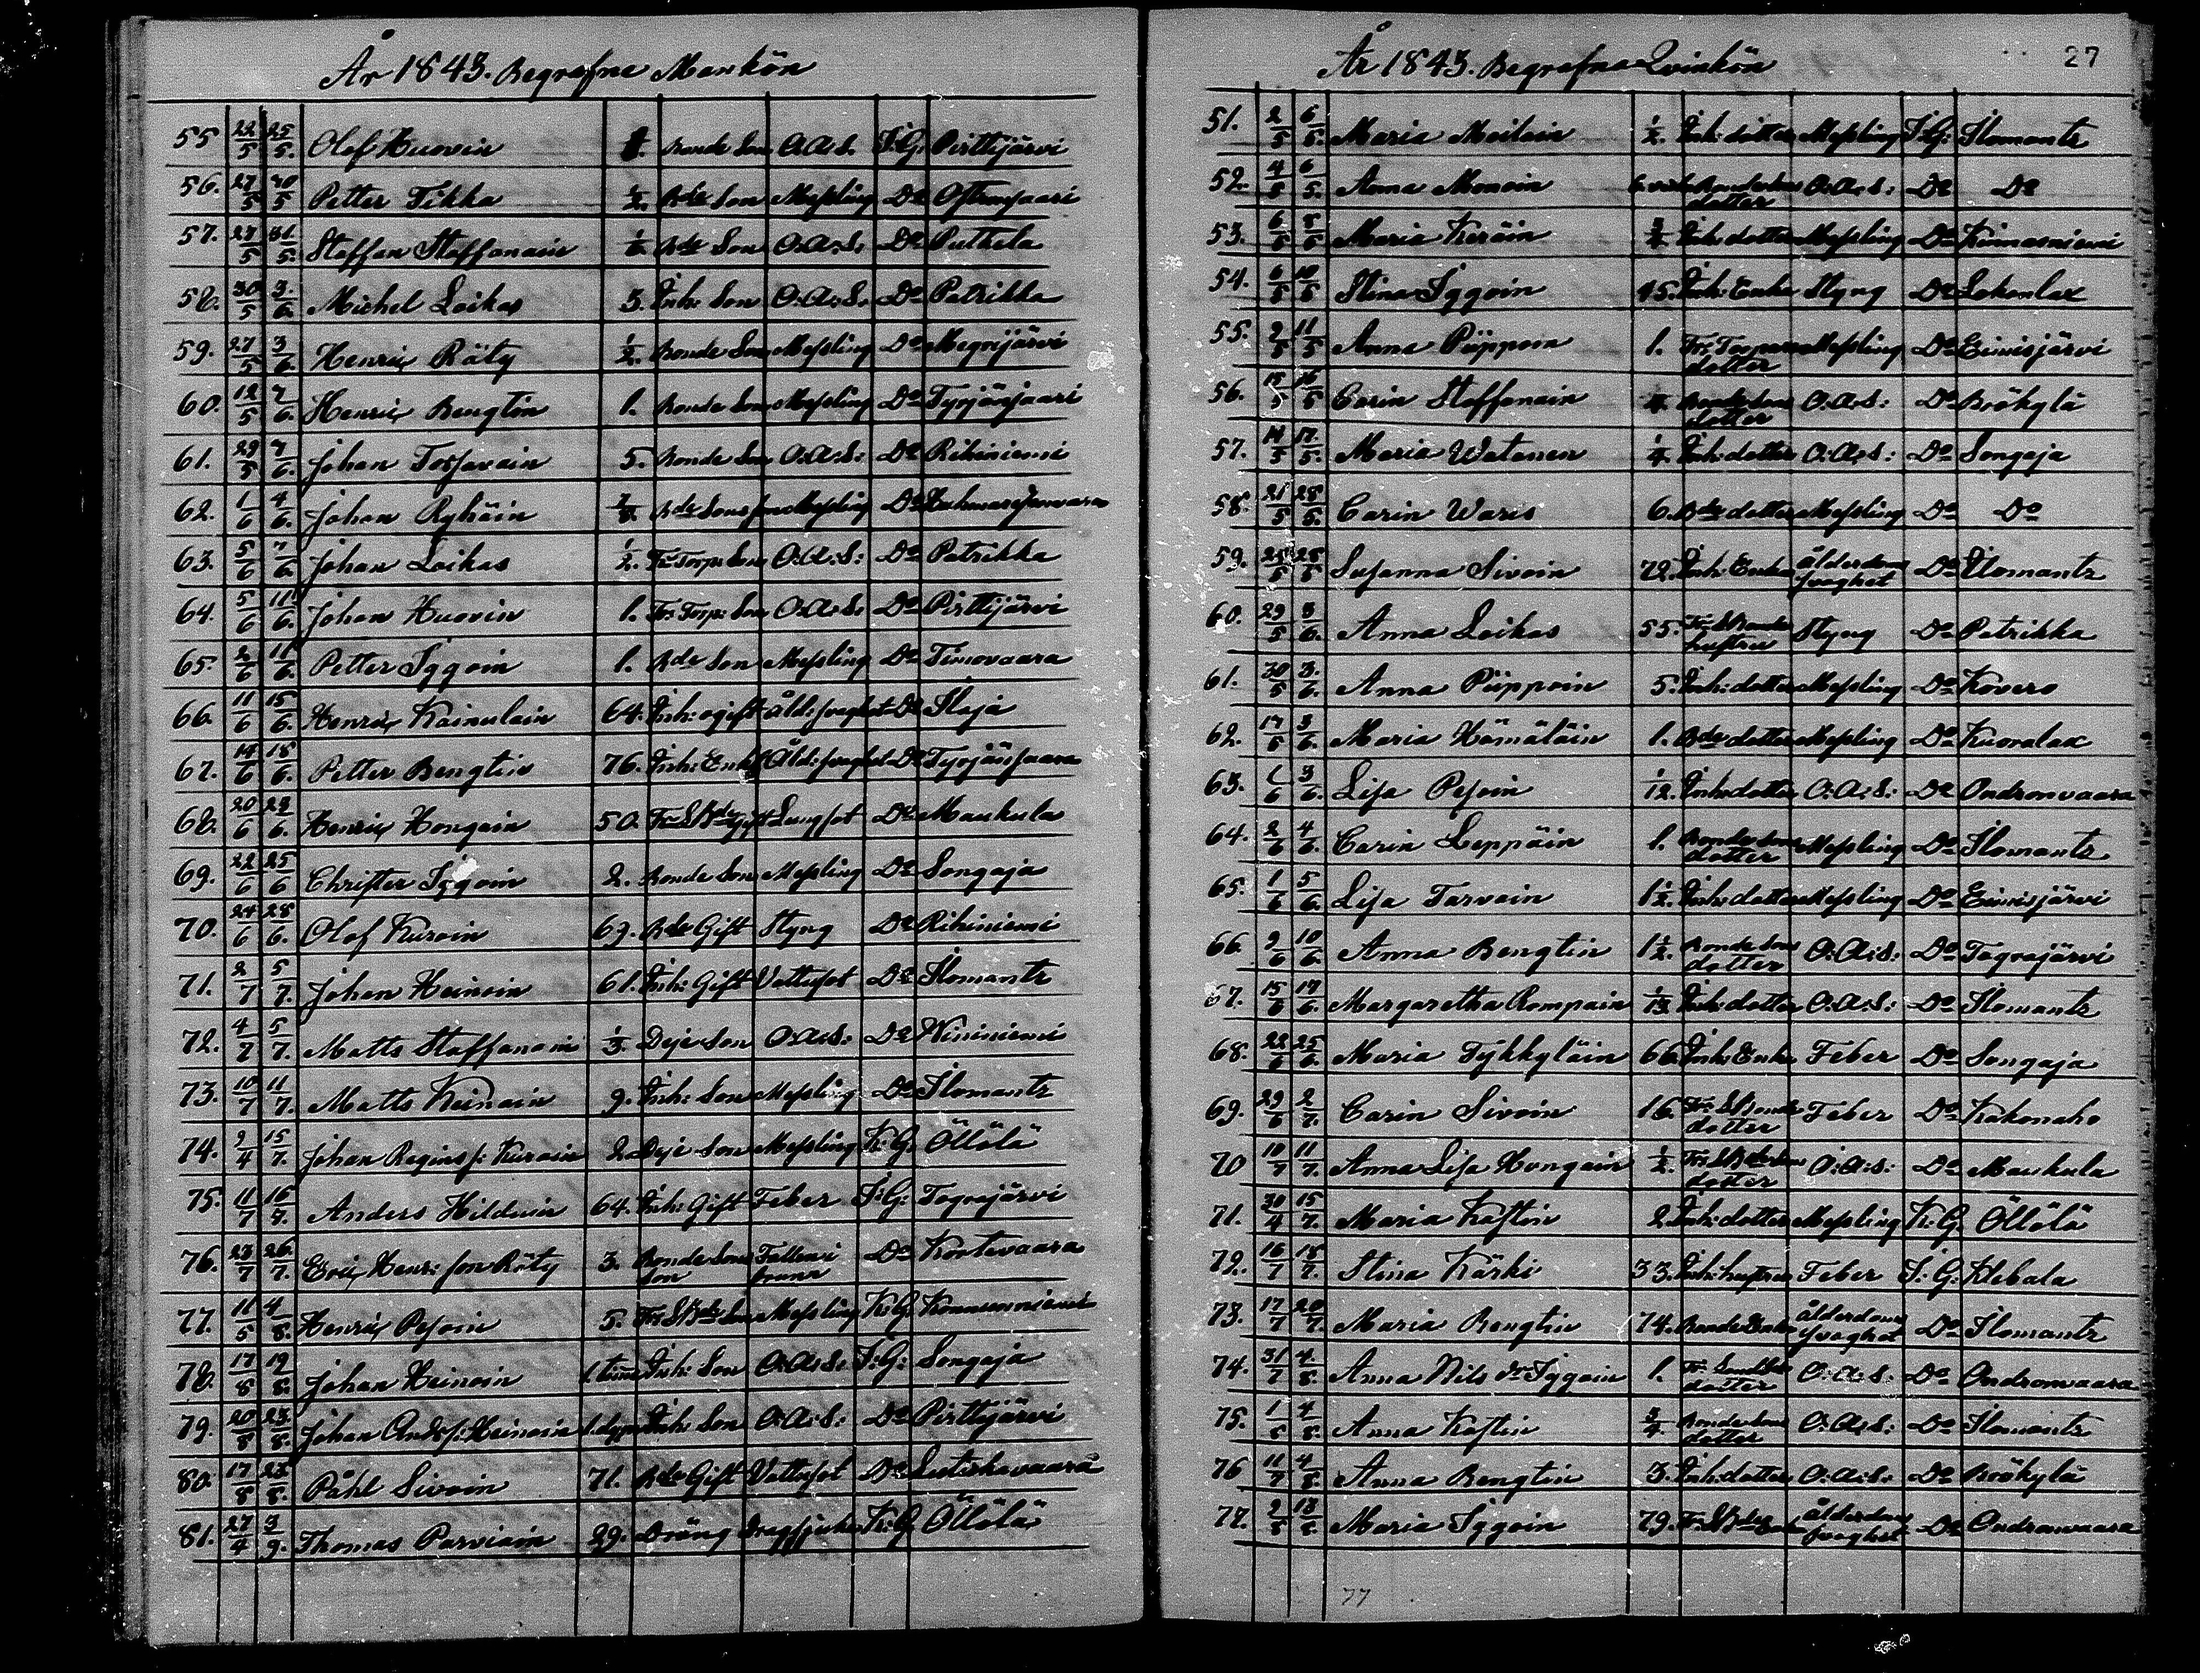 År 1843. Begrafne Mankön
55 22/5 25/5. Olof Huovin 1. Bonde Son O.A.S. I:G: Pirttijärvi
56. 27/5 30/5 Petter Tikka 1/2. Bde Son Messling Do Oftronsaari
57. 27/5 31/5. Staffan Staffanain Bde Son O:A:S: Do Putkela
58. 30/5 3/6. Michel Loikas 3. Inh: Son O:A:S. Do Patrikka
59. 27/5 3/6. Henric Räty 1/2. Bonde Son Messling Do Megrijärvi
60. 12/5 7/6. Henric Bengtin 1. Bonde Son Messling Do Tyrjänsaari
61. 29/5 7/6. Johan Torfvain 5. Bonde Son O:A:S: Do Rihiniemi
62. 1/6 4/6. Johan Ryhäin Bde Sons son Messling Do
63. 5/6 7/6. Johan Loikas 1/2. Fr: Torp: Son O:A:S: Do Patrikka
64. 5/6 11/6. Johan Huovin 1. Fr: Torp: Son O:A:S: Do Pirttijärvi
65. 2/6 11/6. Petter Iggoin 1. Bde Son Messling Do Timovaara
66. 11/6 15/6. Henric Kainulain 64. Inh: ogift åld: svaghet Do Ileja
67. 14/6 18/6. Petter Bengtin 76. Inh: Enkl Åld: svaghet Do Tyrjänsaara
68. 20/6 23/6. Henric Hongain 50. Fr: S Bde Gift Lungsot Do Maukula
69. 22/6 25/6 Christer Iggoin 2. Bonde Son Messling Do Songaja
70. 24/6 28/6. Olof Kuroin 69. Bde Gift Styng Do Rihiniemi
71. 2/7 5/7. Johan Heinoin 61. Inh: Gift Vattusot Do Ilomants
72. 4/7 5/7. Matts Staffanain 1/3. Deje Son O:A:S: Do Niiniemi
73. 10/7 11/7. Matts Keinain 9. Inh: Son Messling Do Ilomants
74. 9/4 15/7. Johan Reginss: Kuroin 2. Deje Son Messling K:G. Öllölä
75. 11/7 16/7. Anders Hildein 64. Inh: Gift Feber I:G: Togvajärvi
76. 23/7 26/7. Eric Henr: son Räty 3. Bonde Sons son Fallen i brunn Do Kontovaara
77. 11/5 4/8. Henric Pesoin 5. Fr: S Bde Son Messling K:G. Konnunniemi
78. 17/8 19/8. Johan Heinoin 1 time Inh: Son O:A:S: I:G: Songaja
79. 20/8 23/8. Johan Ands s: Heinoin 1. dygn Inh: Son O:A:S: Do Pirttijärvi
80. 17/8 23/8. Påhl Sivoin 71. Bde Gift Vattusot Do Lutiskavaara
81. 27/4 3/9. Thomas Parviain 29. Dräng Bröstsjuka K:G. Öllölä
År 1843. Begrafna Qvinkön 27
51. 2/5 6/5. Maria Moilain 1/2. Inh: dotter Messling I:G: Ilomants
52. 4/5 6/5. Anna Monoin Bonde sons dotter O:A:S: Do Do
53. 6/5 8/5 Maria Keräin 3/4. Inh: dotter Messling Do Kinnasniemi
54. 6/5 10/5 Stina Iggoin 45. Inh: Enka Styng Do Lokanlax
55. 9/5 11/5 Anna Piippoin 1. Fr: Torpare dotter Messling Do Eimisjärvi
56. 15/5 16/5 Carin Staffanain Bonde Sons dotter O:A:S: Do Brökylä
57. 14/5 17/5. Maria Watanen 1/4. Inh: dotter O:A:S: Do Songaja
58. 21/5 28/5. Carin Waris 6. Bde dotter Messling Do Do
59. 25/5 28/5 Susanna Sivoin 72. Inh: Enka ålderdoms svaghet Do Ilomants
60. 29/5 3/6. Anna Loikas 55. Fr: S Bonde hustru Styng Do Patrikka
61. 30/5 3/6. Anna Piippoin 5. Inh: dotter Messling Do Kovero
62. 17/5 3/6. Maria Hämäläin 1. Bde dotter Messling Do Kuoralax
63. 3/6. Lisa Pesoin 1/12. Inh: dotter O:A:S: Do Ondronvaara
64. 2/6 4/6. Carin Leppäin 1. Bonde sons dotter Messling Do Ilomants
65. 1/6 5/6. Lisa Tarvain 1 1/2. Inh: dotter Messling Do Eimisjärvi
66. 9/6 10/6. Anna Bengtin 1 1/2. Bonde Sons dotter O:A:S: Do Togvajärvi
67. 15/6 17/6. Margaretha Rompain Inh: dotter O:A:S: Do Ilomants
68. 22/6 25/6. Maria Tykkyläin 66. Inh: Enka Feber Do Songaja
69. 29/6 2/7. Carin Sivoin 16. Fr: S Bonde dotter Feber Do Kakonaho
70 10/7 11/7. Anna Lisa Hongain 1/2. Fr: S Bde Sons dotter O:A:S: Do Maukula
71. 30/4 15/7. Maria Kaftin 2. Inh: dotter Messling K:G. Öllölä
72. 16/7 18/7. Stina Kärki 33. Inh: hustru Feber I:G: Klebala
73. 17/7 20/7. Maria Bengtin 74. Bonde Enka ålderdoms svaghet Do Ilomants
74. 31/7 4/8. Anna Nils dr Iggoin 1. Fr: dotter O:A:S: Do Ondronvaara
75. 1/8 4/8. Anna Kaftin 3/4. Bonde Sons dotter O:A:S: Do Ilomants
76 11/7 4/8. Anna Bengtin 3. Inh: dotter O:A:S: Do Brökylä
77. 2/8 13/8. Maria Iggoin 79. Fr: S Bde Enka ålderdoms svaghet Do Ondronvaara
77